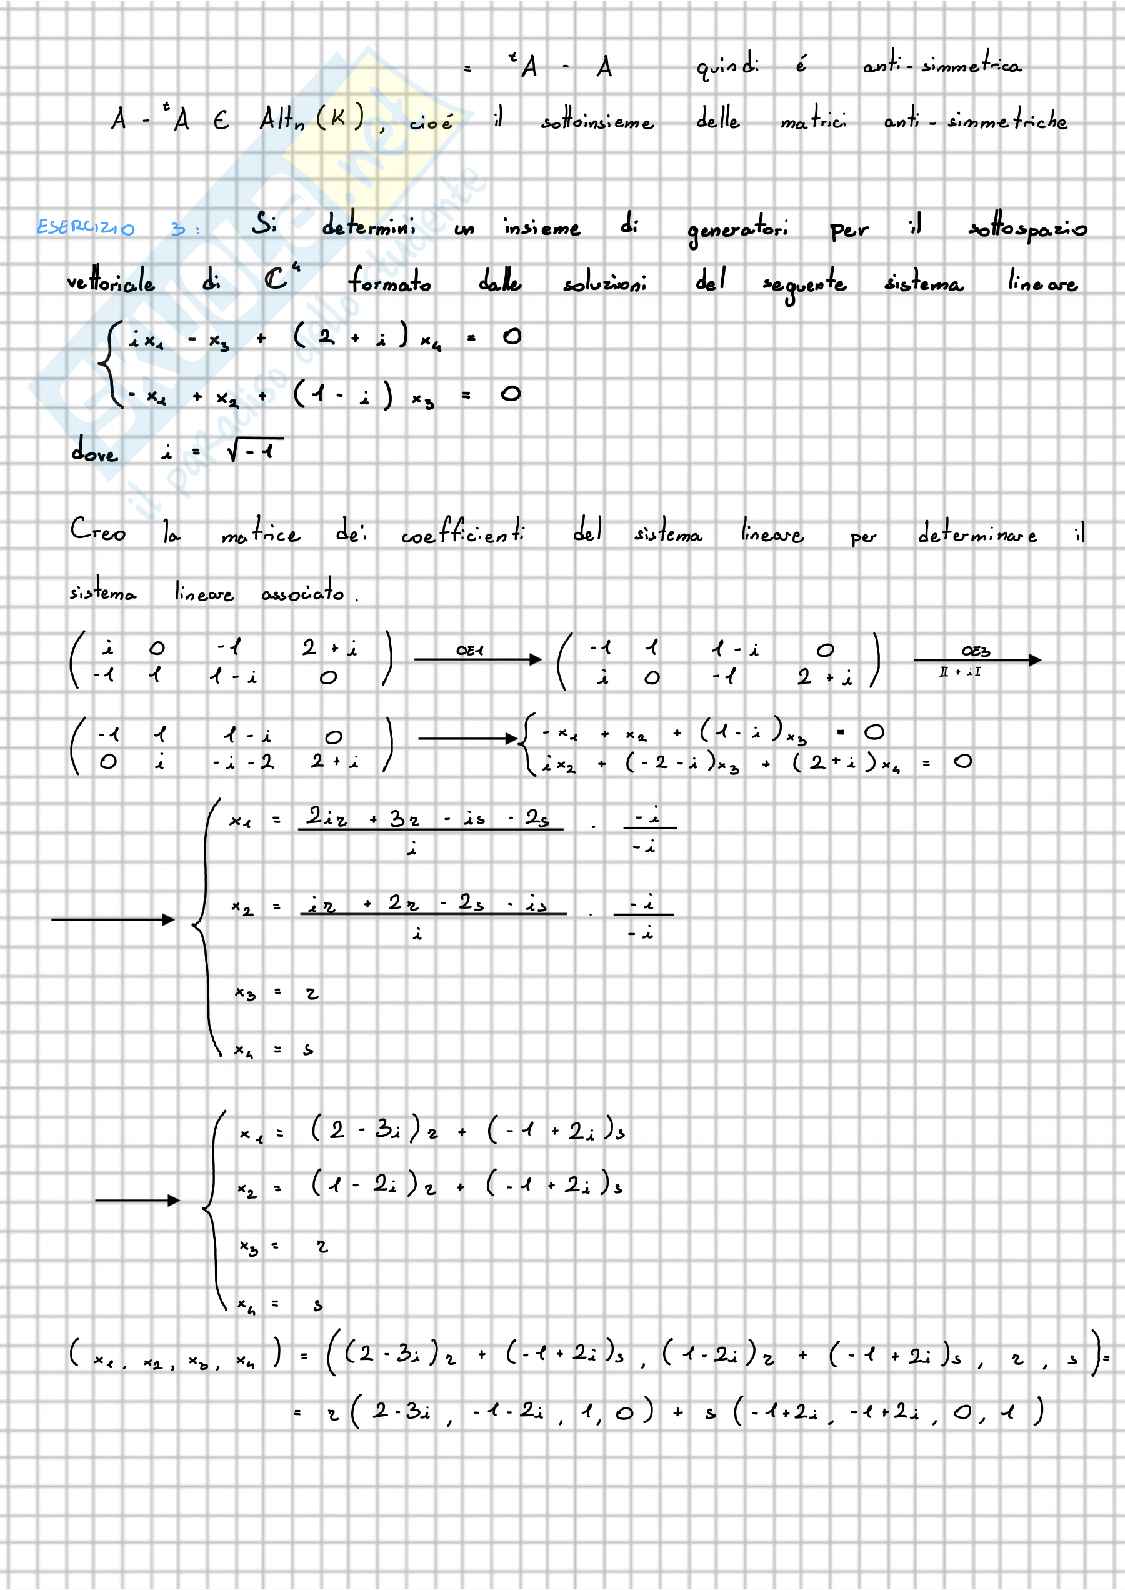 = ᵗA - A quindi é anti-simmetrica
A - ᵗA ∈ Altₙ(K), cioé il sottoinsieme delle matrici anti-simmetriche
ESERCIZIO 3: Si determini un insieme di generatori per il sottospazio
vettoriale di ℂ⁴ formato dalle soluzioni del seguente sistema lineare
{ ix₁ - x₃ + (2 + i)x₄ = 0
{ -x₁ + x₂ + (1 - i)x₃ = 0
dove i = √-1
Creo la matrice dei coefficienti del sistema lineare per determinare il
sistema lineare associato.
( i 0 -1 2+i ) OE1 ( -1 1 1-i 0 ) OE3
( -1 1 1-i 0 ) → ( i 0 -1 2+i ) → II + iI
( -1 1 1-i 0 ) → { -x₁ + x₂ + (1-i)x₃ = 0
( 0 i -i-2 2+i ) { ix₂ + (-2-i)x₃ + (2+i)x₄ = 0
→ { x₁ = (2ir + 3r - is - 2s)/i · -i/-i
x₂ = (ir + 2r - 2s - is)/i · -i/-i
x₃ = r
x₄ = s
→ { x₁ = (2 - 3i)r + (-1 + 2i)s
x₂ = (1 - 2i)r + (-1 + 2i)s
x₃ = r
x₄ = s
(x₁, x₂, x₃, x₄) = ((2-3i)r + (-1+2i)s, (1-2i)r + (-1+2i)s, r, s) =
= r(2-3i, -1-2i, 1, 0) + s(-1+2i, -1+2i, 0, 1)
SKUOLA.net
il paradiso dello studente